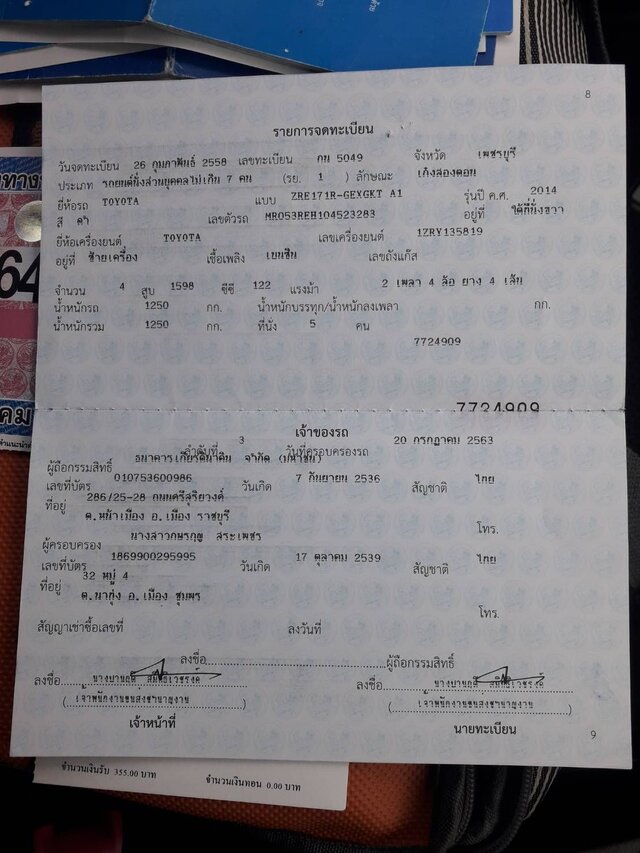 8
รายการจดทะเบียน
วันจดทะเบียน 26 กุมภาพันธ์ 2558 เลขทะเบียน กน 5049 จังหวัด เพชรบุรี
ประเภท รถยนต์นั่งส่วนบุคคลไม่เกิน 7 คน (รย. 1 ) ลักษณะ เก๋งสองตอน
ยี่ห้อรถ TOYOTA แบบ ZRE171R-GEXGKT A1 รุ่นปี ค.ศ. 2014
สี ดำ เลขตัวรถ MR053REH104523283 อยู่ที่ ใต้ที่นั่งขวา
ยี่ห้อเครื่องยนต์ TOYOTA เลขเครื่องยนต์ 1ZRY135819
อยู่ที่ ซ้ายเครื่อง เชื้อเพลิง เบนซิน เลขถังแก๊ส
จำนวน 4 สูบ 1598 ซีซี 122 แรงม้า 2 เพลา 4 ล้อ ยาง 4 เส้น
น้ำหนักรถ 1250 กก. น้ำหนักบรรทุก/น้ำหนักลงเพลา กก.
น้ำหนักรวม 1250 กก. ที่นั่ง 5 คน
7724909
7724909
เจ้าของรถ
ลำดับที่ 3 วันที่ครอบครองรถ 20 กรกฎาคม 2563
ผู้ถือกรรมสิทธิ์ ธนาคารเกียรตินาคิน จำกัด (มหาชน)
เลขที่บัตร 010753600986 วันเกิด 7 กันยายน 2536 สัญชาติ ไทย
ที่อยู่ 286/25-28 ถนนศรีสุริยวงศ์
ต.หน้าเมือง อ.เมือง ราชบุรี โทร.
ผู้ครอบครอง นางสาวกษรกญ สระเพชร
เลขที่บัตร 1869900295995 วันเกิด 17 ตุลาคม 2539 สัญชาติ ไทย
ที่อยู่ 32 หมู่ 4
ต.นาทุ่ง อ.เมือง ชุมพร โทร.
สัญญาเช่าซื้อเลขที่ ลงวันที่
ลงชื่อ ผู้ถือกรรมสิทธิ์
ลงชื่อ ลงชื่อ
(เจ้าพนักงานขนส่งชำนาญงาน) (เจ้าพนักงานขนส่งชำนาญงาน)
เจ้าหน้าที่ นายทะเบียน
9
จำนวนเงินรับ 355.00 บาท จำนวนเงินทอน 0.00 บาท
64